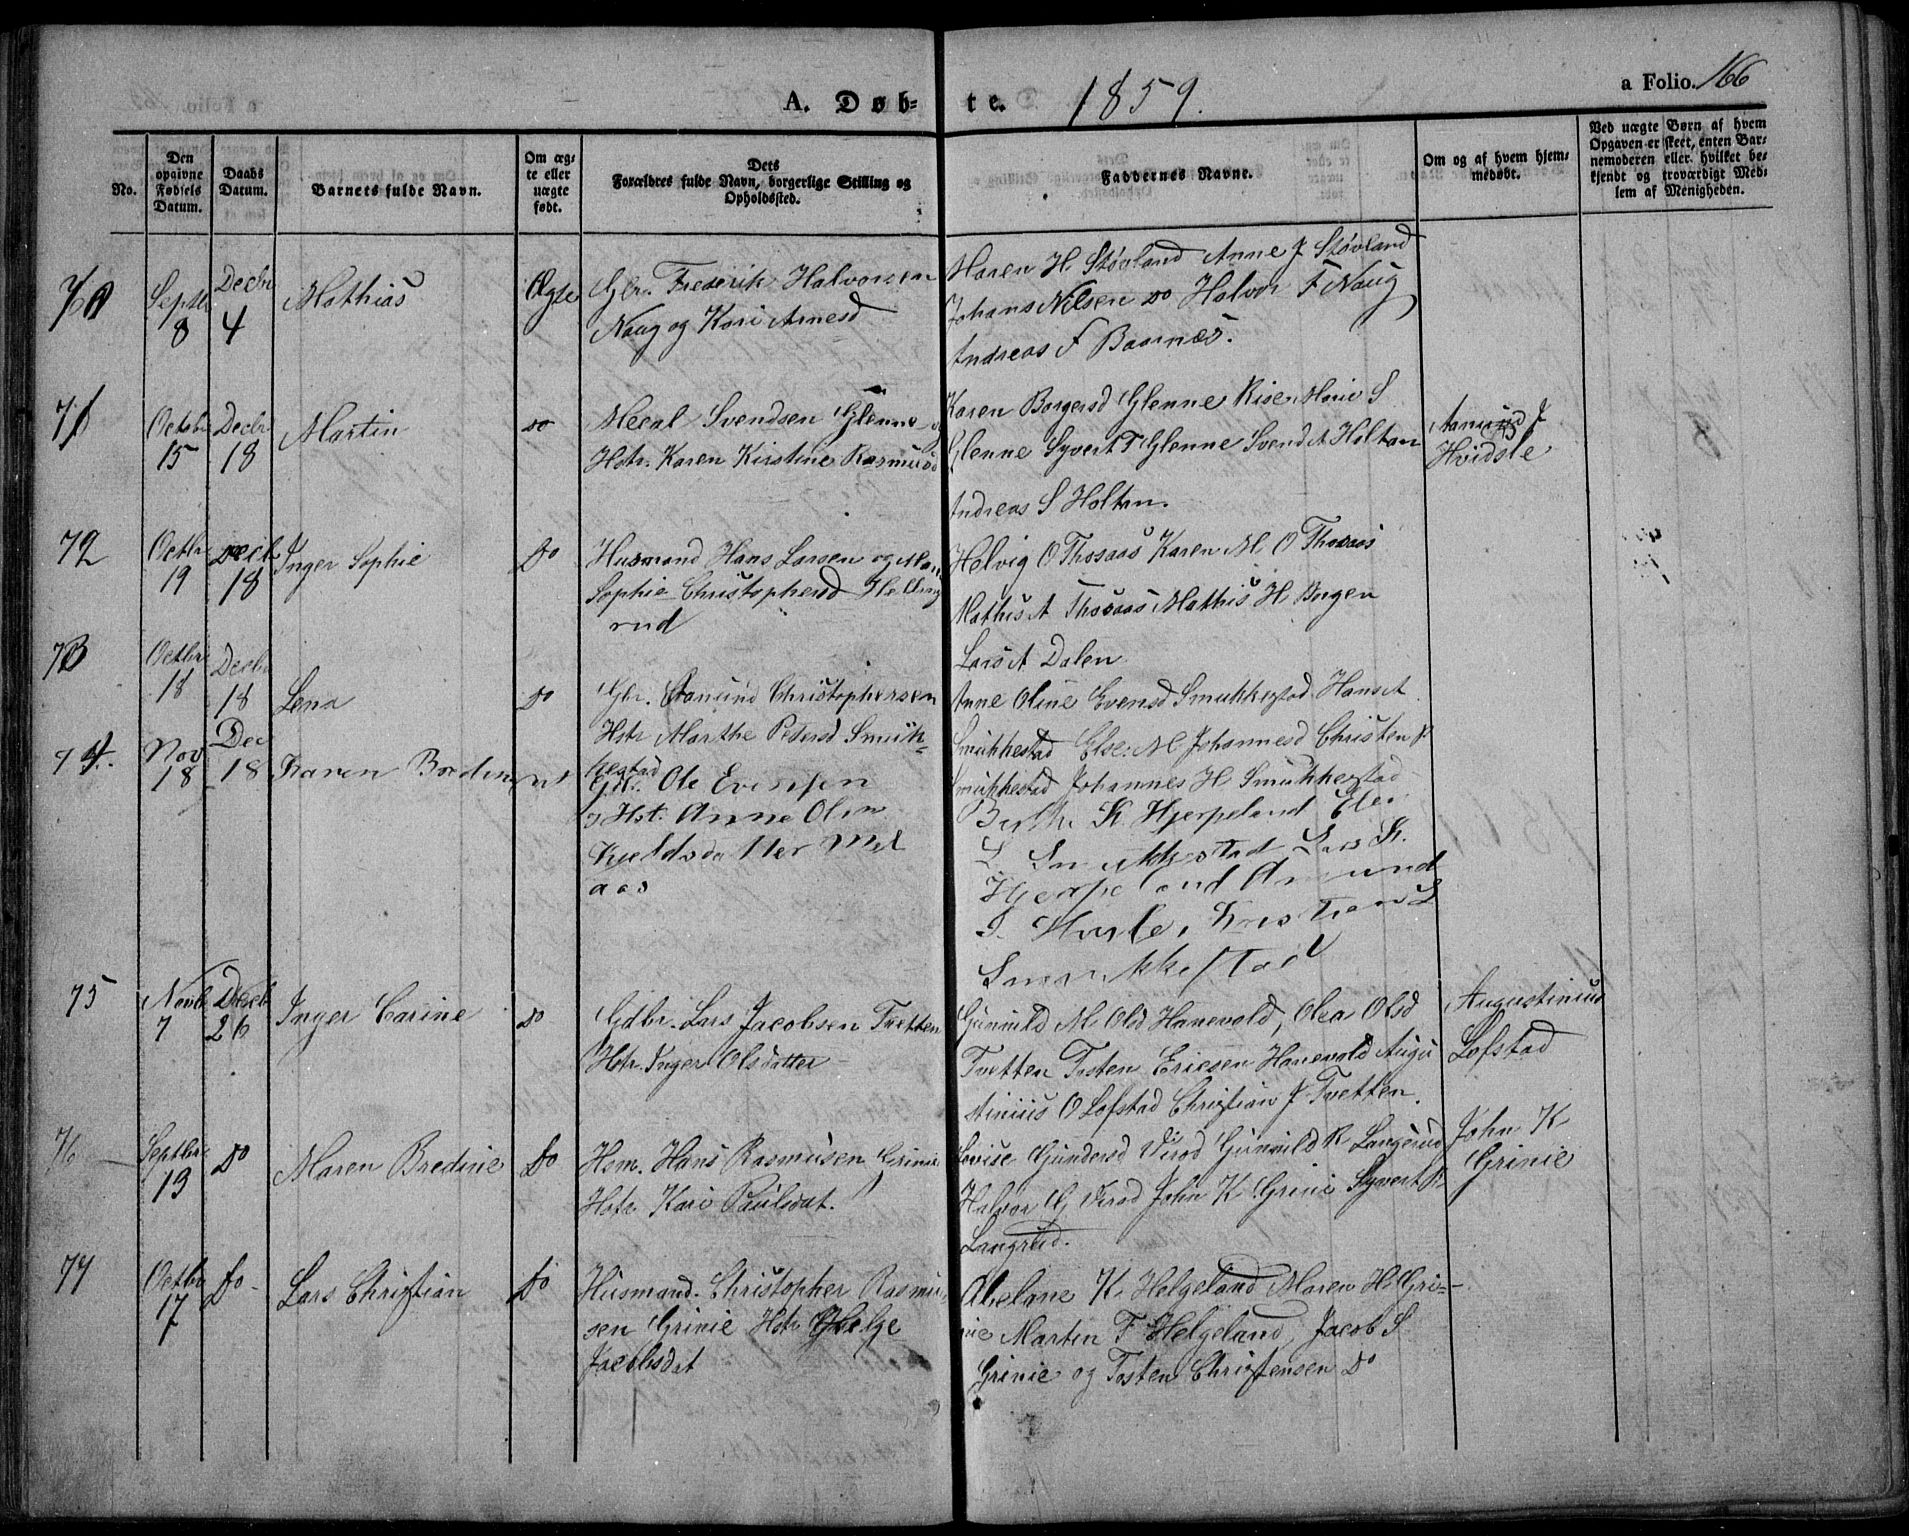 A. Døb-te. 1859. a Folio. 166
No.
Den opgivne Fødsels Datum.
Daabs Datum.
Barnets fulde Navn.
Om ægte eller uægte født.
Dets Forældres fulde Navn, borgerlige Stilling og Opholdssted.
Faddernes Navne.
Om og af hvem hjemmedøbt.
Ved uægte Børn af hvem Opgaven er skeet, enten Barnemoderen eller hvilket bekjendt og troværdigt Medlem af Menigheden.
70
Septbr 8
Decbr 4
Mathias
Ægte
Gbr. Frederik Halvorsen
Naug og Kari Arnesd
Maren H Støvland Anne J Støvland
Johans Nilsen do Halvor F Naug
Andreas F Baarnes.
71
Octobr 15
Decbr 18
Martin
do
Svendsen Glenne og
Hstr. Karen Kirstine Rasmusd
Karen Borgersd Glenne Marie S
Glenne Syvert T Glenne Svend A Holtan
Andreas S Holtan.
Hvidsle
72
Octbr 19
Decb 18
Inger Sophie
do
Husmand Hans Larsen og
Sophie Christophersd Helling
rud
Helvig O Thosaas Karen M. O Thosaas
Mathis A Thosaas Mathis H. Bergen
Lars A Dalen
73
Octbr 18
Decbr 18
Lena
do
Gbr. Christophersen
Hstr Marthe Pedersd Smuk-
kestad
Anne Oline Evensd Smukkestad Hans A
Smukkestad Else. M. Johannesd Christen P
Smukkestad Johannes H. Smukkestad
74.
Nov 18
Dec 18
Karen
Ole Evensen
Hst. Anne Olm
Kjeldsdatter Mel
aas
K. Hjerpeland
L. Smukkestad Lars K.
Hjerpeland Amund
Kristian L
Smukkestad
75
Novb 7
Decb 26
Inger Carine
do
Gdbr. Lars Jacobsen Tvetten
Hstr. Inger Olsdatter
Gunnild M. Olsd Hanevold, Olea Olsd
Tvetten Tosten Ericsen Hanevold Augu
stinius O Lofstad Christian J Tvetten.
Augustinius
Lofstad
76
Septbr 19
do
Maren Bredine
do
Hsm. Hans Rasmusen Grinie
Hstr Kari Paulsdat.
Lovise Gundersd Virod Gunnild R Langerud
Halvor G Virod John K Grinie Syvert R
Langrud.
John K
Grinie
77
Octbr 17
do
Lars Christian
do
Husmand. Christopher Rasmu
sen Grinie Hstr Helge
Jacobsdat
Abelane K. Helgeland Maren H Gri-
nie Martin F Helgeland, Jacob S
Grinie og Tosten Christensen do